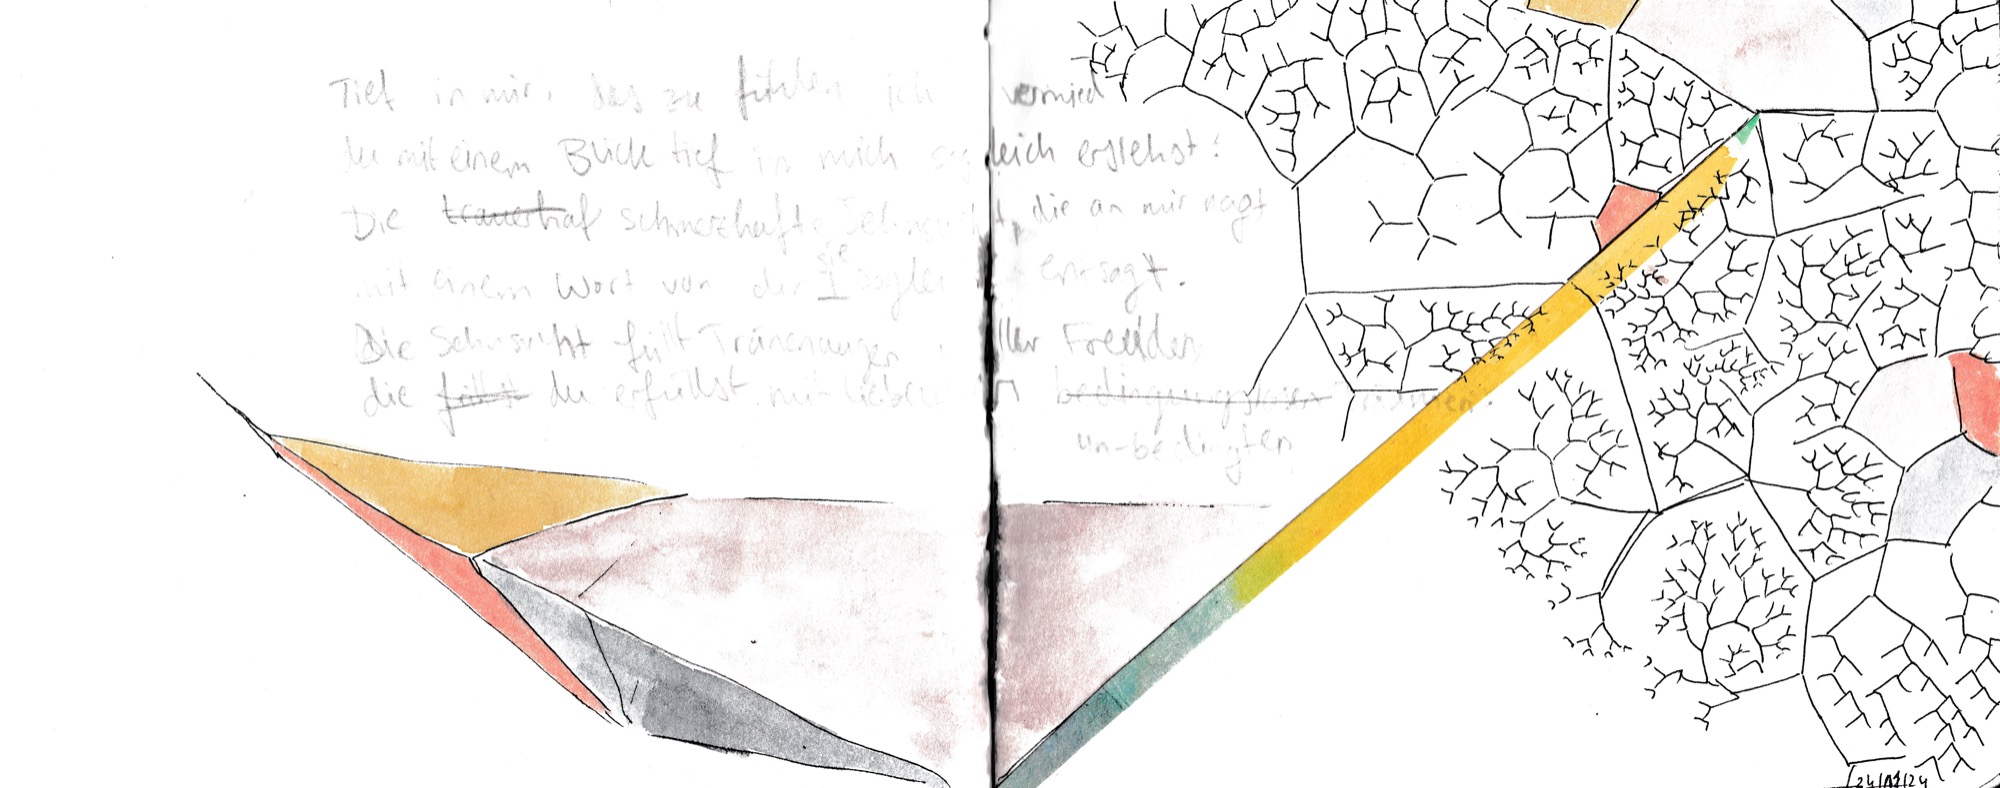 Tief in mir, das zu fühlen ich vermied
du mit einem Blick tief in mich sogleich ersiehst!
Die trauerhaf schmerzhafte Sehnsucht, die an mir nagt
mit einem Wort von dir sogleich entsagt.
Die Sehnsucht füllt Tränenaugen aller Freuden
die füllst du erfüllst mit bedingungslosen Träumen.
un-bedingten
24/12/24